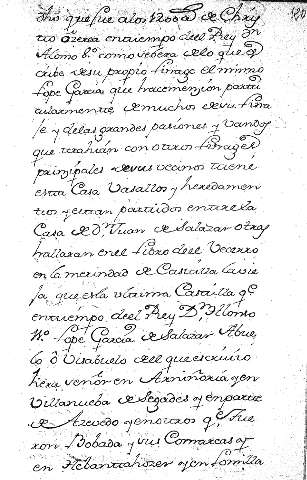 dho que fue a los 1200 aº de Chris
to y era en tiempo del Rey Dn
Alonso 8º como se vera de lo que es
cribe de su propio linage el mismo
Lope Garcia que hace mencion parti
cularmente de muchos de su lina
je y de las grandes pasiones y Vandos
que trahian con otros linages
principales de sus vecinos tiene
esta Casa Vasallos y heredamen
tos y estan partidos entre la
Casa de Dn Juan de Salazar otros
hallaran en el libro del Vecerro
en la merindad de Castilla la vie
ja que es la ultima Castilla qe
en tiempo del Rey Dn Alonso
Lope Garcia de Salazar Abue
lo o Visabuelo del que escrivio
hera señor en
Villanueba de y en parte
de Azevedo y en otros qe fue
ron Bobada y sus Comarcas y
en y en Lomilla